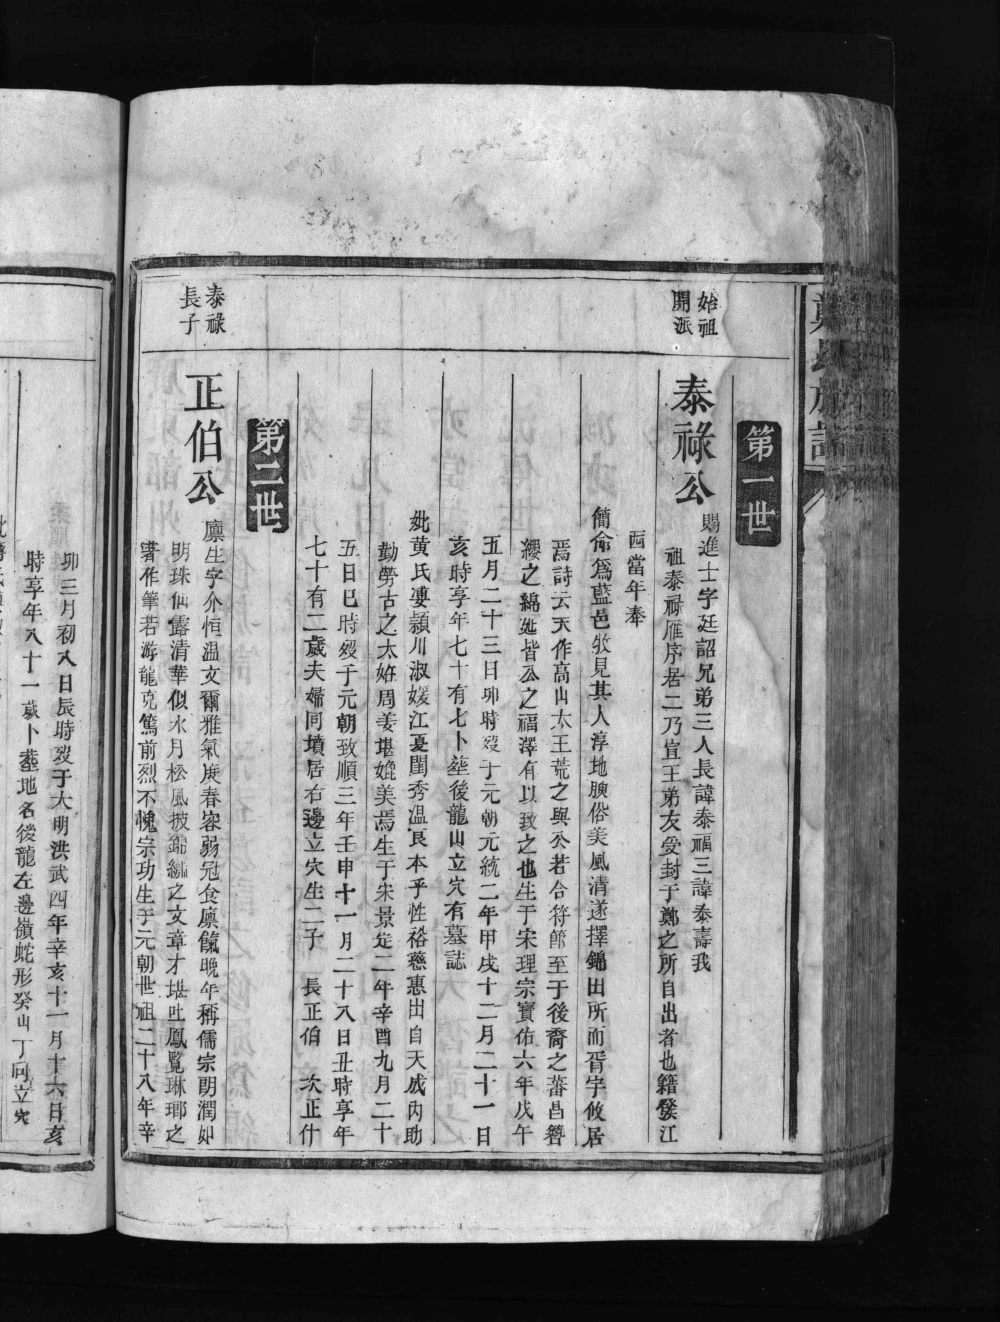 鄭氏族譜
第一世
始祖
開派
泰祿公
賜進士字廷詔兄弟三人長諱泰福三諱泰壽我
祖泰祿雁序居二乃宣王弟友受封于鄭之所自出者也籍發江
西當年奉
簡命爲藍邑牧見其人淳地腴俗美風清遂擇錦田所而胥宇攸居
焉詩云天作高山太王荒之與公若合符節至于後裔之蕃昌簪
纓之綿延皆公之福澤有以致之也生于宋理宗寳佑六年戊午
五月二十三日卯時歿于元朝元統二年甲戌十二月二十一日
亥時享年七十有七卜塟後龍山立穴有墓誌
妣黃氏婁潁川淑媛江夏閨秀温良本乎性裕慈惠出自天成內助
勤勞古之太姙周姜堪媲美焉生于宋景定二年辛酉九月二十
五日巳時歿于元朝致順三年壬申十一月二十八日丑時享年
七十有二歲夫婦同墳居右邊立穴生二子 長正伯 次正什
第二世
泰祿
長子
正伯公
廩生字外恒温文爾雅氣度春容弱冠食廩餼晩年稱儒宗朗潤如
明珠仙露清華似水月松風披錦繡之文章才堪吐鳳覧琳瑯之
著作筆若游龍克篤前烈不愧宗功生于元朝世祖二十八年辛
卯三月初八日辰時歿于大明洪武四年辛亥十一月十六日亥
時享年八十一歲卜塟地名後龍左邊嶺蛇形癸山丁向立穴